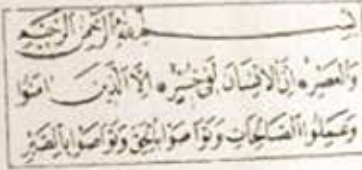 بِسْمِ اللهِ الرَّحْمٰنِ الرَّحِيْمِ
وَالْعَصْرِ ۞ اِنَّ الْاِنْسَانَ لَفِىْ خُسْرٍ ۞ اِلَّا الَّذِيْنَ اٰمَنُوْا
وَعَمِلُوا الصَّالِحَاتِ وَتَوَاصَوْا بِالْحَقِّ وَتَوَاصَوْا بِالصَّبْرِ